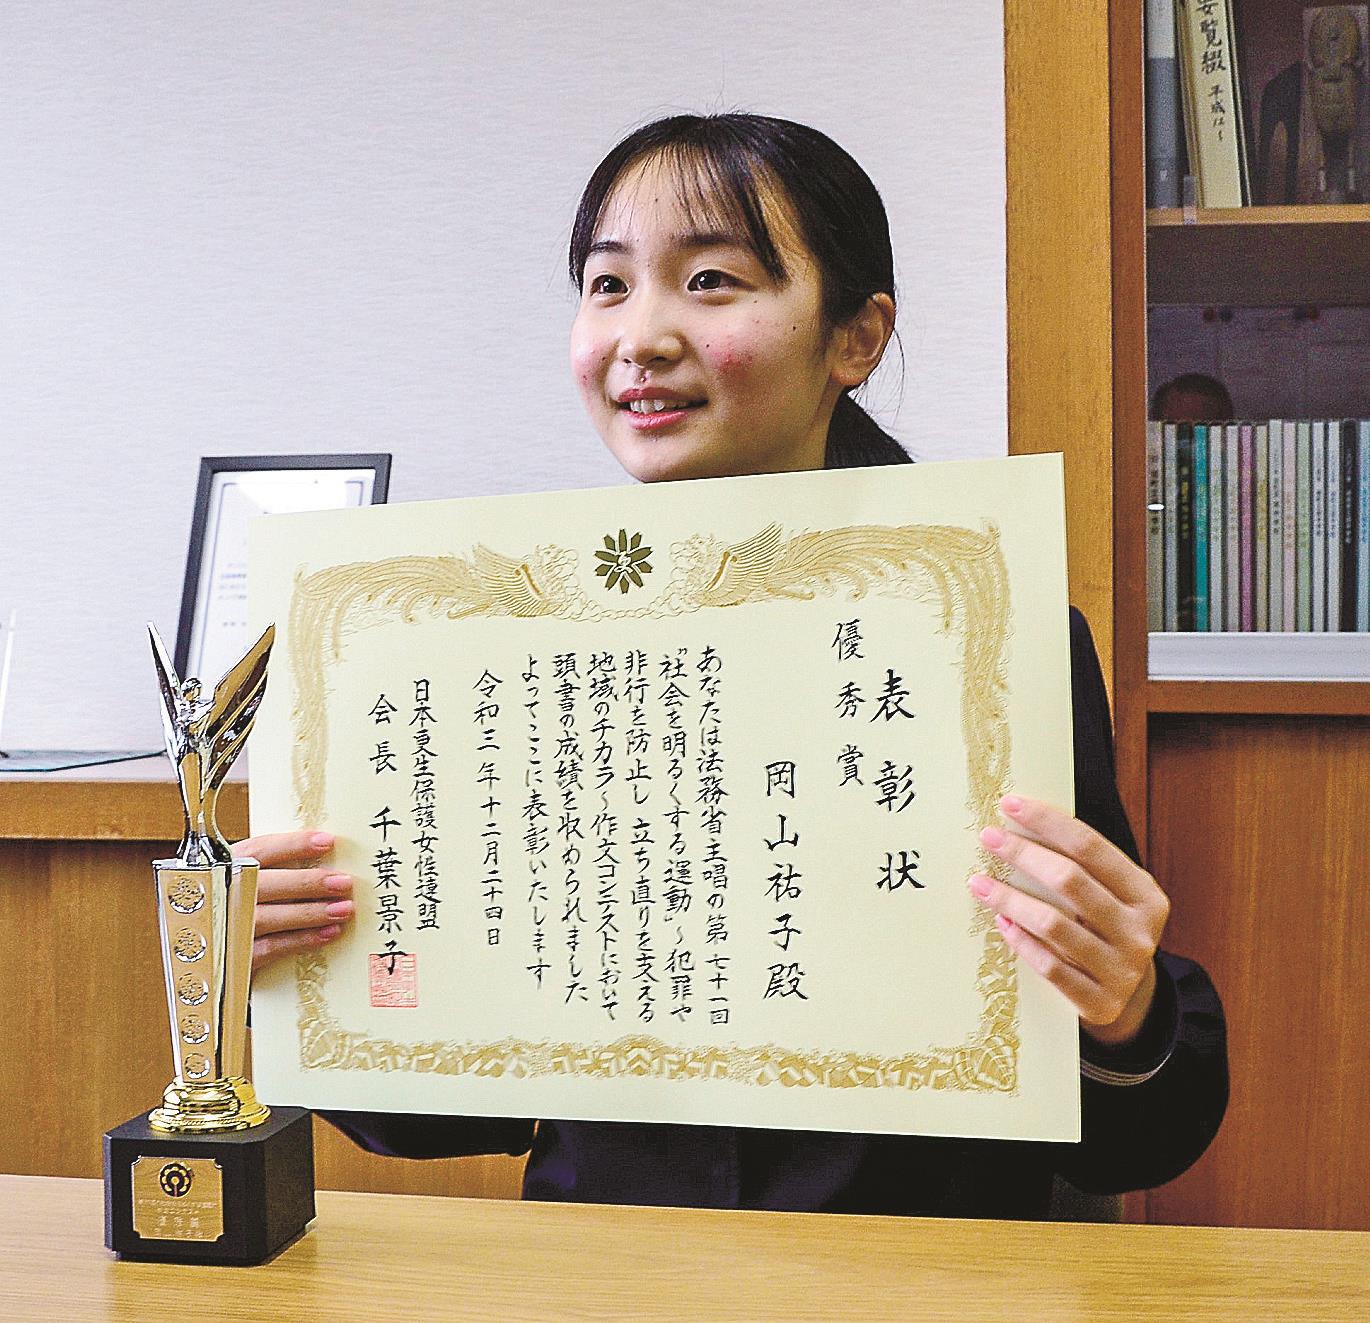 表彰状
優秀賞
岡山祐子殿
あなたは法務省主唱の第七十一回
“社会を明るくする運動”～犯罪や
非行を防止し立ち直りを支える
地域のチカラ～作文コンテストにおいて
頭書の成績を収められました
よってここに表彰いたします
令和三年十二月二十四日
日本更生保護女性連盟
会長 千葉景子
要覧綴 平成12～
優秀賞